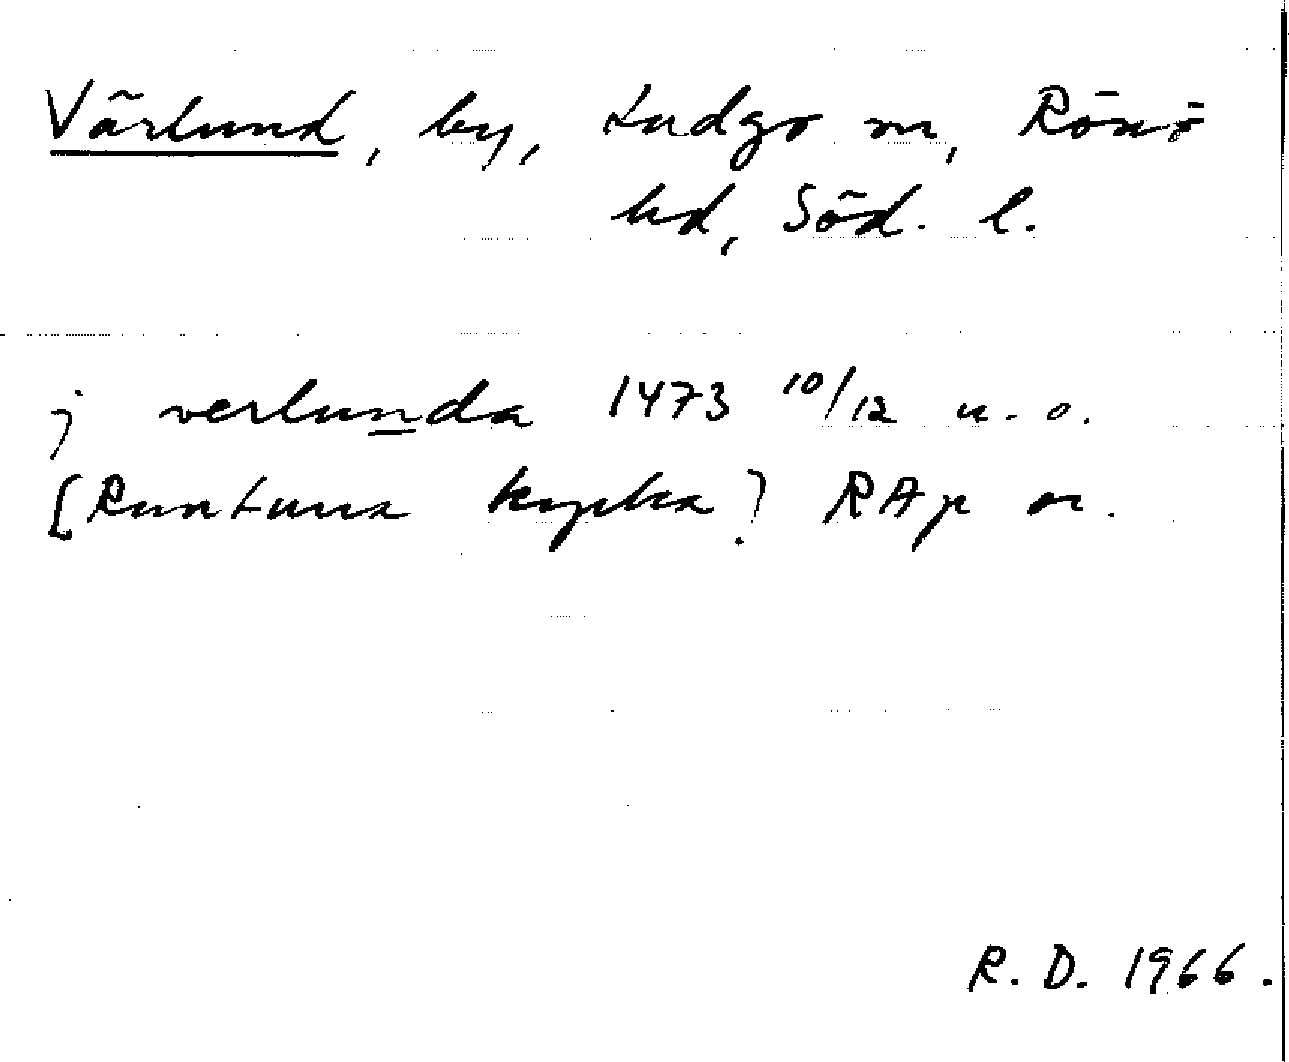 Värlund, by, Ludgo sn, Rönö
hd, Söd. l.
j verlunda 1473 10/12 u. o.
[Runtuna kyrka? RAp or.
R. D. 1966.